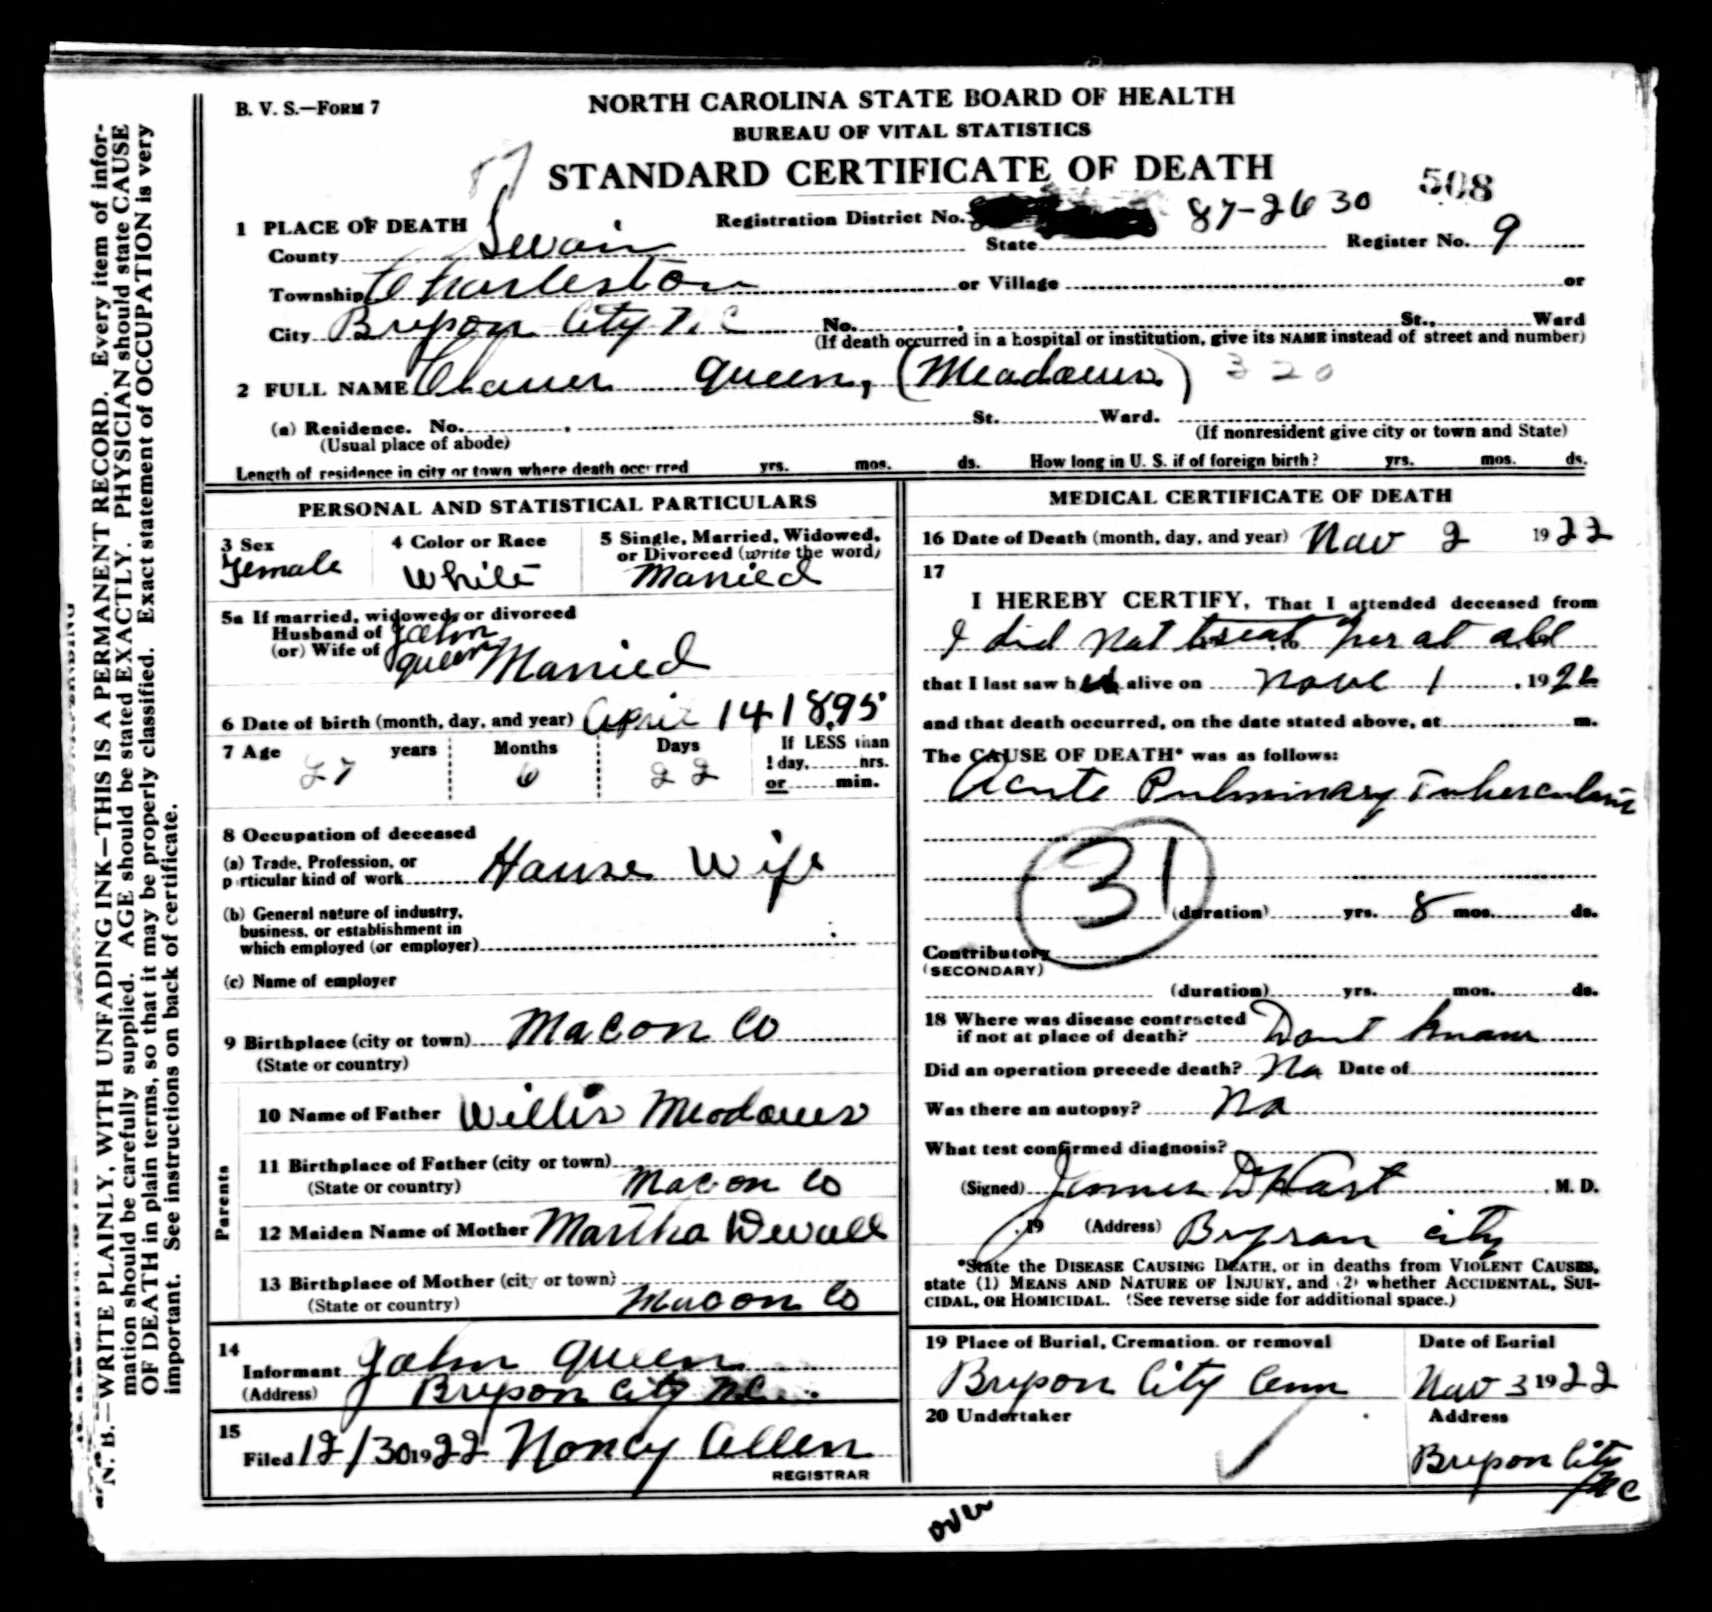 B. V. S.—FORM 7
NORTH CAROLINA STATE BOARD OF HEALTH
BUREAU OF VITAL STATISTICS
STANDARD CERTIFICATE OF DEATH
508
1 PLACE OF DEATH
Registration District No. 87-2630
County Swain State Register No. 9
Township Charleston or Village or
City Bryson City N.C No. St., Ward
(If death occurred in a hospital or institution, give its NAME instead of street and number)
2 FULL NAME Queen, (Meadows) 320
(a) Residence. No. St. Ward.
(Usual place of abode) (If nonresident give city or town and State)
Length of residence in city or town where death occurred yrs. mos. ds. How long in U. S. if of foreign birth? yrs. mos. ds.
PERSONAL AND STATISTICAL PARTICULARS
3 Sex 4 Color or Race 5 Single, Married, Widowed, or Divorced (write the word)
Female White Married
5a If married, widowed, or divorced
Husband of John
(or) Wife of Queen Married
6 Date of birth (month, day, and year) April 14 1895
7 Age years Months Days If LESS than
27 6 22 1 day, hrs.
or min.
8 Occupation of deceased
(a) Trade, Profession, or
particular kind of work House Wife
(b) General nature of industry,
business, or establishment in
which employed (or employer)
(c) Name of employer
9 Birthplace (city or town) Macon Co
(State or country)
Parents
10 Name of Father Willis Meadows
11 Birthplace of Father (city or town)
(State or country) Macon Co
12 Maiden Name of Mother Martha
13 Birthplace of Mother (city or town)
(State or country) Macon Co
14
Informant John Queen
(Address) Bryson City N.C.
15
Filed 12/30 1922 Nancy Allen
REGISTRAR
MEDICAL CERTIFICATE OF DEATH
16 Date of Death (month, day, and year) Nov 2 1922
17
I HEREBY CERTIFY, That I attended deceased from
I did not treat her at all
that I last saw her alive on Nove 1, 192
and that death occurred, on the date stated above, at m.
The CAUSE OF DEATH* was as follows:
Acute Pulminary Tuberculosis
31
(duration) yrs. 8 mos. ds.
Contributory
(SECONDARY)
(duration) yrs. mos. ds.
18 Where was disease contracted
if not at place of death? Dont know
Did an operation precede death? No Date of
Was there an autopsy? No
What test confirmed diagnosis?
(Signed) M. D.
, 19 (Address) Bryson City
*State the DISEASE CAUSING DEATH, or in deaths from VIOLENT CAUSES,
state (1) MEANS AND NATURE OF INJURY, and (2) whether ACCIDENTAL, SUI-
CIDAL, OR HOMICIDAL. (See reverse side for additional space.)
19 Place of Burial, Cremation, or removal Date of Burial
Bryson City Cem Nov 3 1922
20 Undertaker Address
Bryson City
N C
over
N. B.—WRITE PLAINLY, WITH UNFADING INK—THIS IS A PERMANENT RECORD. Every item of infor-
mation should be carefully supplied. AGE should be stated EXACTLY. PHYSICIAN should state CAUSE
OF DEATH in plain terms, so that it may be properly classified. Exact statement of OCCUPATION is very
important. See instructions on back of certificate.